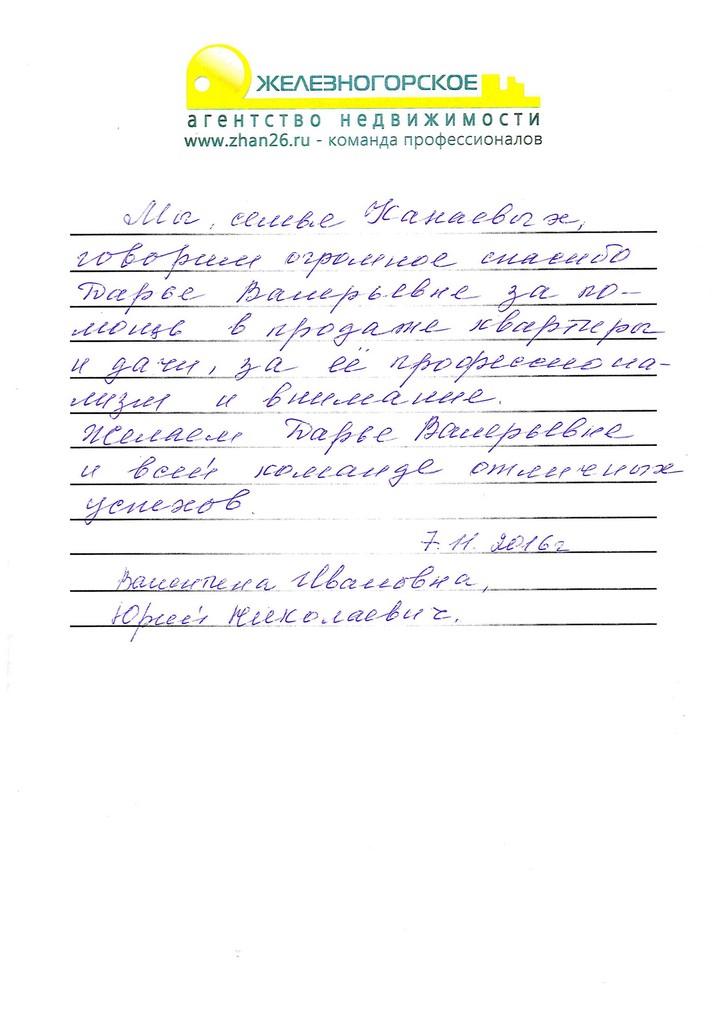 ЖЕЛЕЗНОГОРСКОЕ
агентство недвижимости
www.zhan26.ru - команда профессионалов
Мы, семья Канаевых,
говорим огромное спасибо
Дарье Валерьевне за по-
мощь в продаже квартиры
и дачи, за её профессиона-
лизм и внимание.
Желаем Дарье Валерьевне
и всей команде отличных
успехов.
7.11.2016г
Валентина Ивановна,
Юрий Николаевич.